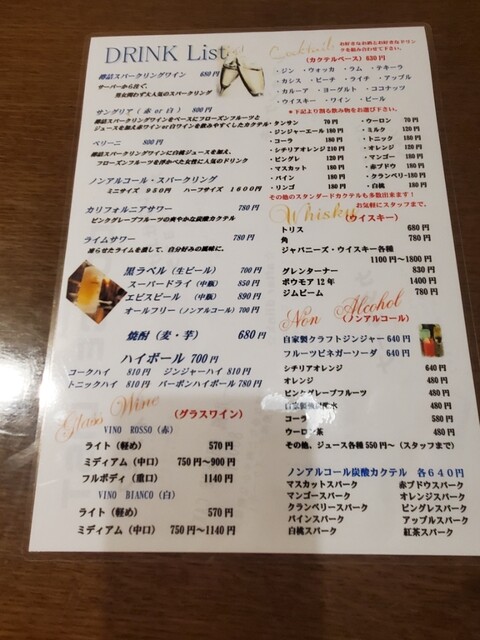 DRINK List
樽詰スパークリングワイン 680円
サーバーから注ぐ、
男女問わず大人気のスパークリング
サングリア(赤 or 白) 800円
樽詰スパークリングワインをベースにフローズンフルーツと
ジュースを加え赤ワインor白ワインを飲みやすくしたカクテル
ベリーニ 800円
樽詰スパークリングワインに白桃ジュースを加え、
フローズンフルーツを浮かべた女性に人気のドリンク
ノンアルコール・スパークリング
ミニサイズ 950円 ハーフサイズ 1600円
カリフォルニアサワー 780円
ピンクグレープフルーツの爽やかな炭酸カクテル
ライムサワー 780円
凍らせたライムを潰して、自分好みの風味に。
黒ラベル(生ビール) 700円
スーパードライ(中瓶) 850円
エビスビール (中瓶) 890円
オールフリー(ノンアルコール) 700円
焼酎(麦・芋) 680円
ハイボール 700円
コークハイ 810円 ジンジャーハイ 810円
トニックハイ 810円 バーボンハイボール 780円
Glass Wine (グラスワイン)
VINO ROSSO(赤)
ライト(軽め) 570円
ミディアム(中口) 750円~900円
フルボディ(重口) 1140円
VINO BIANCO(白)
ライト(軽め) 570円
ミディアム(中口) 750円~1140円
Cocktails お好きなお酒とお好きなドリン
クを組み合わせて下さい。
(カクテルベース) 630円
・ジン ・ウォッカ ・ラム ・テキーラ
・カシス ・ピーチ ・ライチ ・アップル
・カルーア ・ヨーグルト ・ココナッツ
・ウイスキー ・ワイン ・ビール
*下記より割る飲み物をお選び下さい*
・タンサン 70円 ・ウーロン 70円
・ジンジャーエール 180円 ・ミルク 120円
・コーラ 180円 ・トニック 180円
・シチリアオレンジ 210円 ・オレンジ 180円
・ピングレ 180円 ・マンゴー 180円
・マスカット 180円 ・赤ブドウ 180円
・パイン 180円 ・クランベリー 180円
・リンゴ 180円 ・白桃 180円
その他のスタンダードカクテルも多数出来ます!
お気軽にスタッフまで。
Whisky (ウイスキー)
トリス 680円
角 780円
ジャパニーズ・ウイスキー各種
1100円~1800円
グレンターナー 830円
ボウモア 12年 1400円
ジムビーム 780円
Non Alcohol
(ノンアルコール)
自家製クラフトジンジャー 640円
フルーツビネガーソーダ 640円
シチリアオレンジ 640円
オレンジ 480円
ピンクグレープフルーツ 480円
480円
コーラ 580円
ウーロン茶 480円
その他、ジュース各種 550円~(スタッフまで)
ノンアルコール炭酸カクテル 各640円
マスカットスパーク 赤ブドウスパーク
マンゴースパーク オレンジスパーク
クランベリースパーク ピングレスパーク
パインスパーク アップルスパーク
白桃スパーク 紅茶スパーク